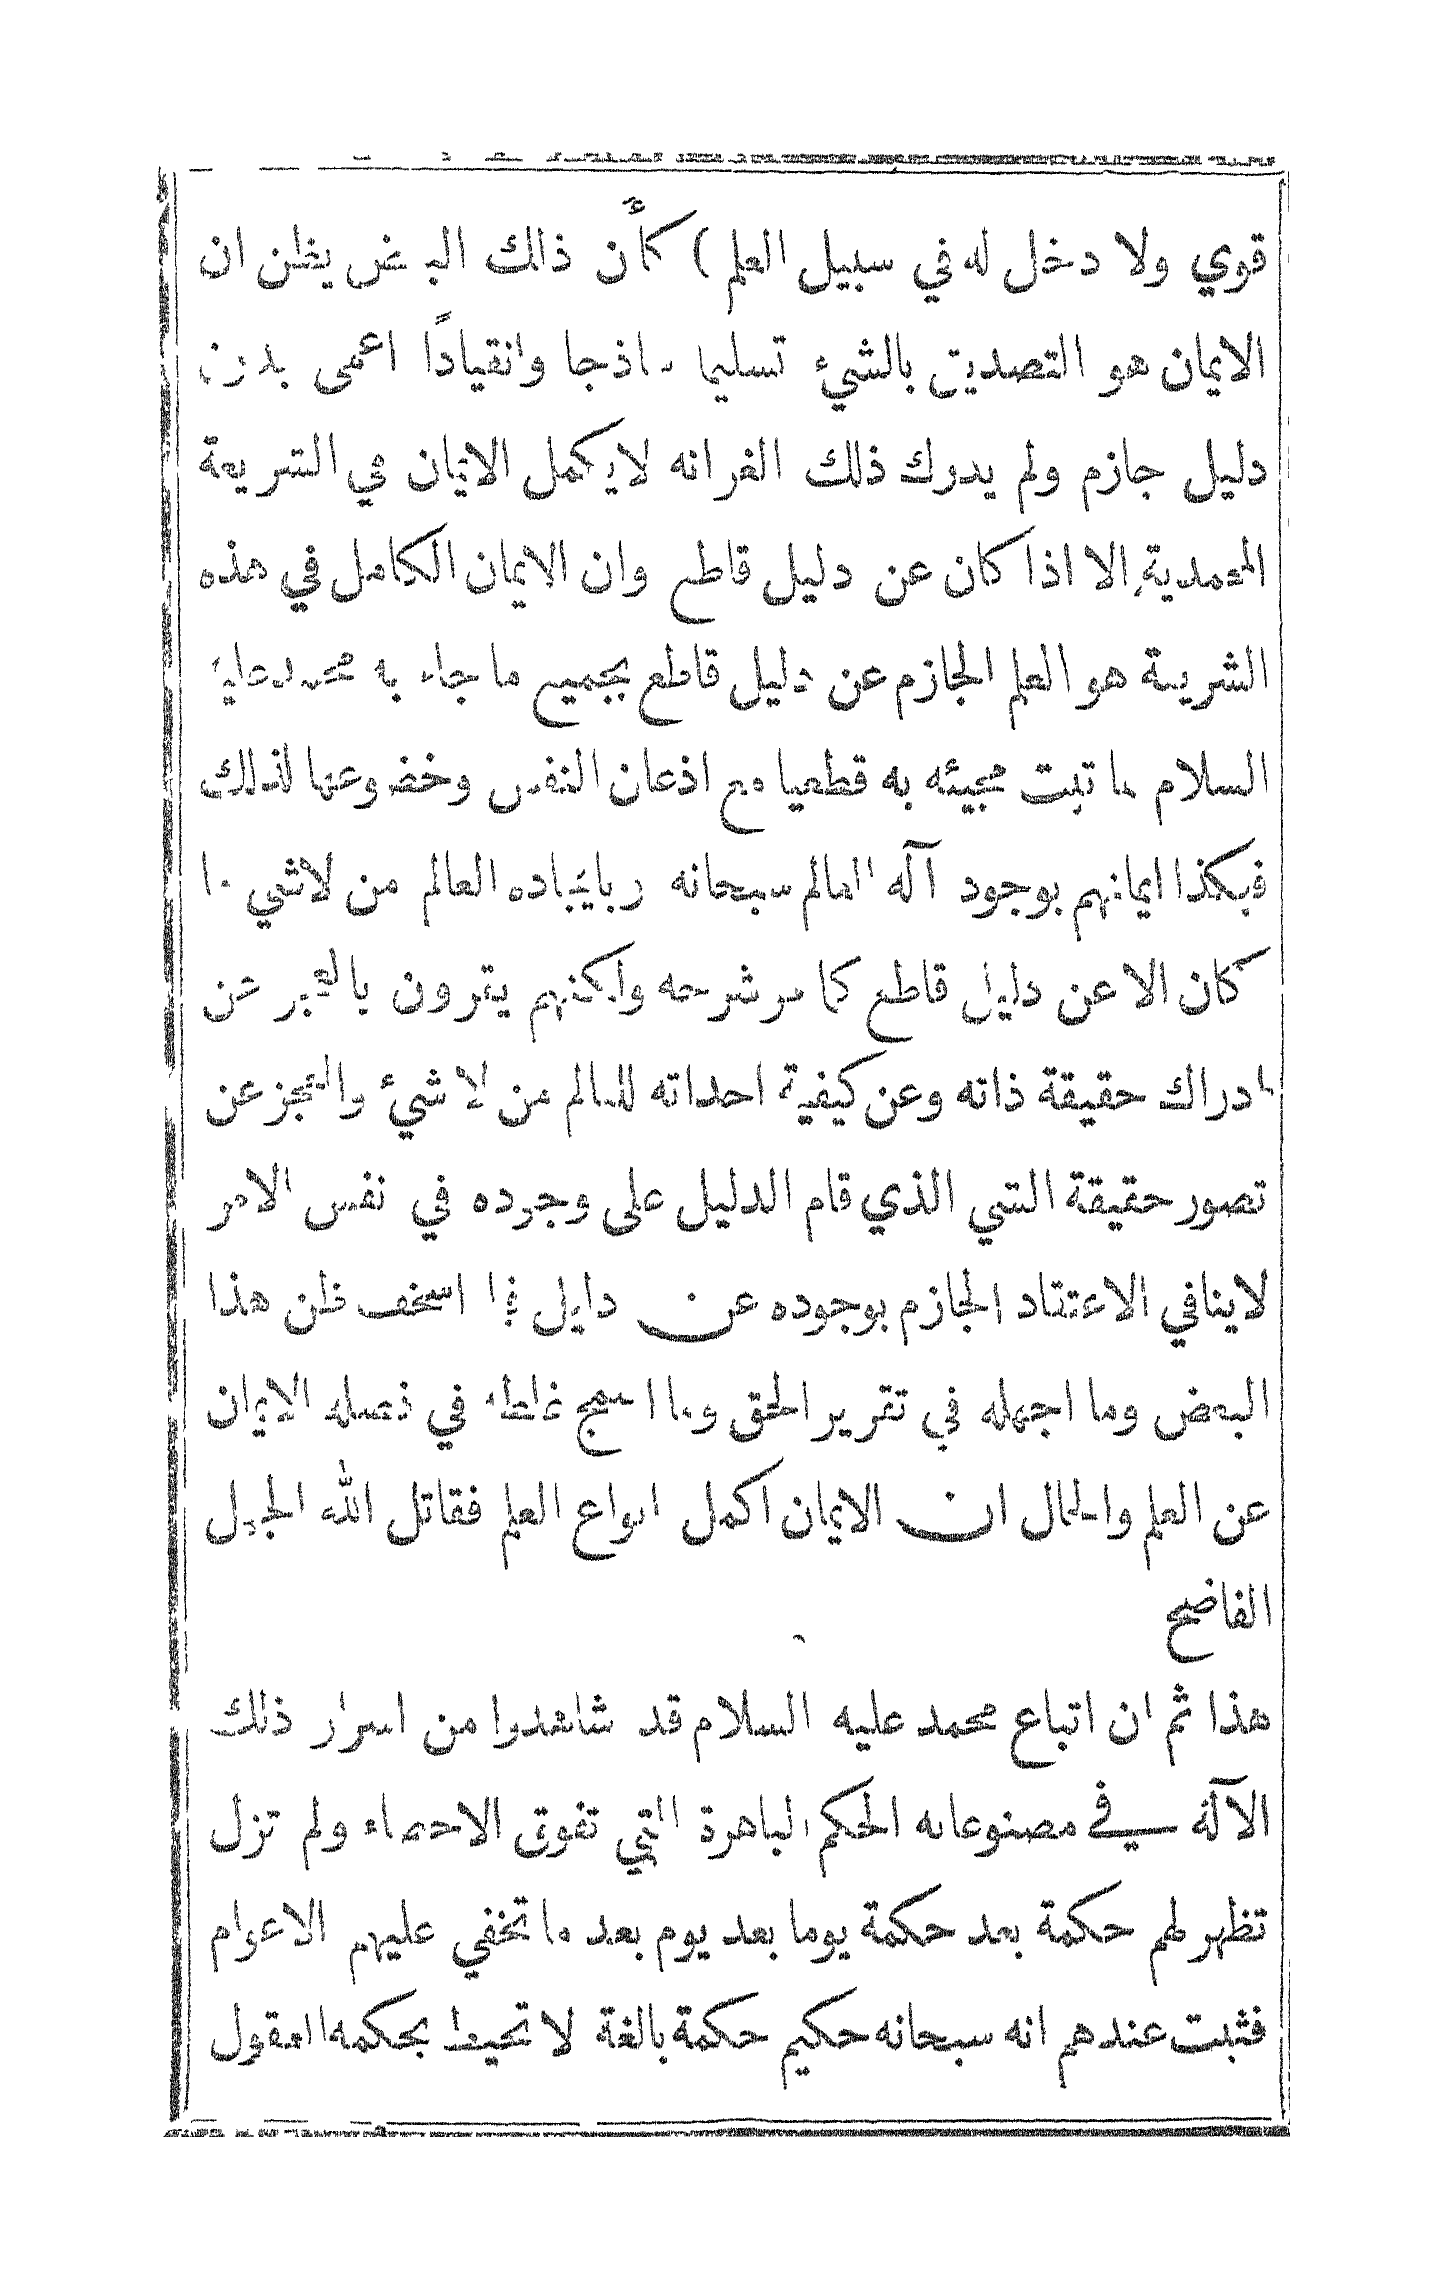 قوي ولا دخل له في سبيل العلم ) كأن ذلك البعض يظن ان
الايمان هو التصديق بالشيء تسليما ساذجا وانقيادًا اعمى بدون
دليل جازم ولم يدرك ذلك الغر انه لا يكمل الايمان في الشريعة
المحمدية الا اذا كان عن دليل قاطع وان الايمان الكامل في هذه
الشريعة هو العلم الجازم عن دليل قاطع بجميع ما جاء به محمد عليه
السلام مما ثبت مجيئه به قطعيا مع اذعان النفس وخضوعها لذلك
فهكذا ايمانهم بوجود آله العالم سبحانه وبايجاده العالم من لاشي ما
كان الا عن دليل قاطع كما مر شرحه ولكنهم يقرون بالعجز عن
ادراك حقيقة ذاته وعن كيفية احداثه للعالم من لا شيء والعجز عن
تصور حقيقة الشي الذي قام الدليل على وجوده في نفس الامر
لاينافي الاعتقاد الجازم بوجوده عن دليل فما اسخف ظن هذا
البعض وما اجهله في تقرير الحق وما اسمج غلطه في فصله الايمان
عن العلم والحال ان الايمان اكمل انواع العلم فقاتل الله الجهل
الفاضح
هذا ثم ان اتباع محمد عليه السلام قد شاهدوا من اسرار ذلك
الآله في مصنوعاته الحكم الباهرة التي تفوق الاحصاء ولم تزل
تظهر لهم حكمة بعد حكمة يوما بعد يوم بعد ما تخفي عليهم الاعوام
فثبت عندهم انه سبحانه حكيم حكمة بالغة لا تحيط بحكمه العقول